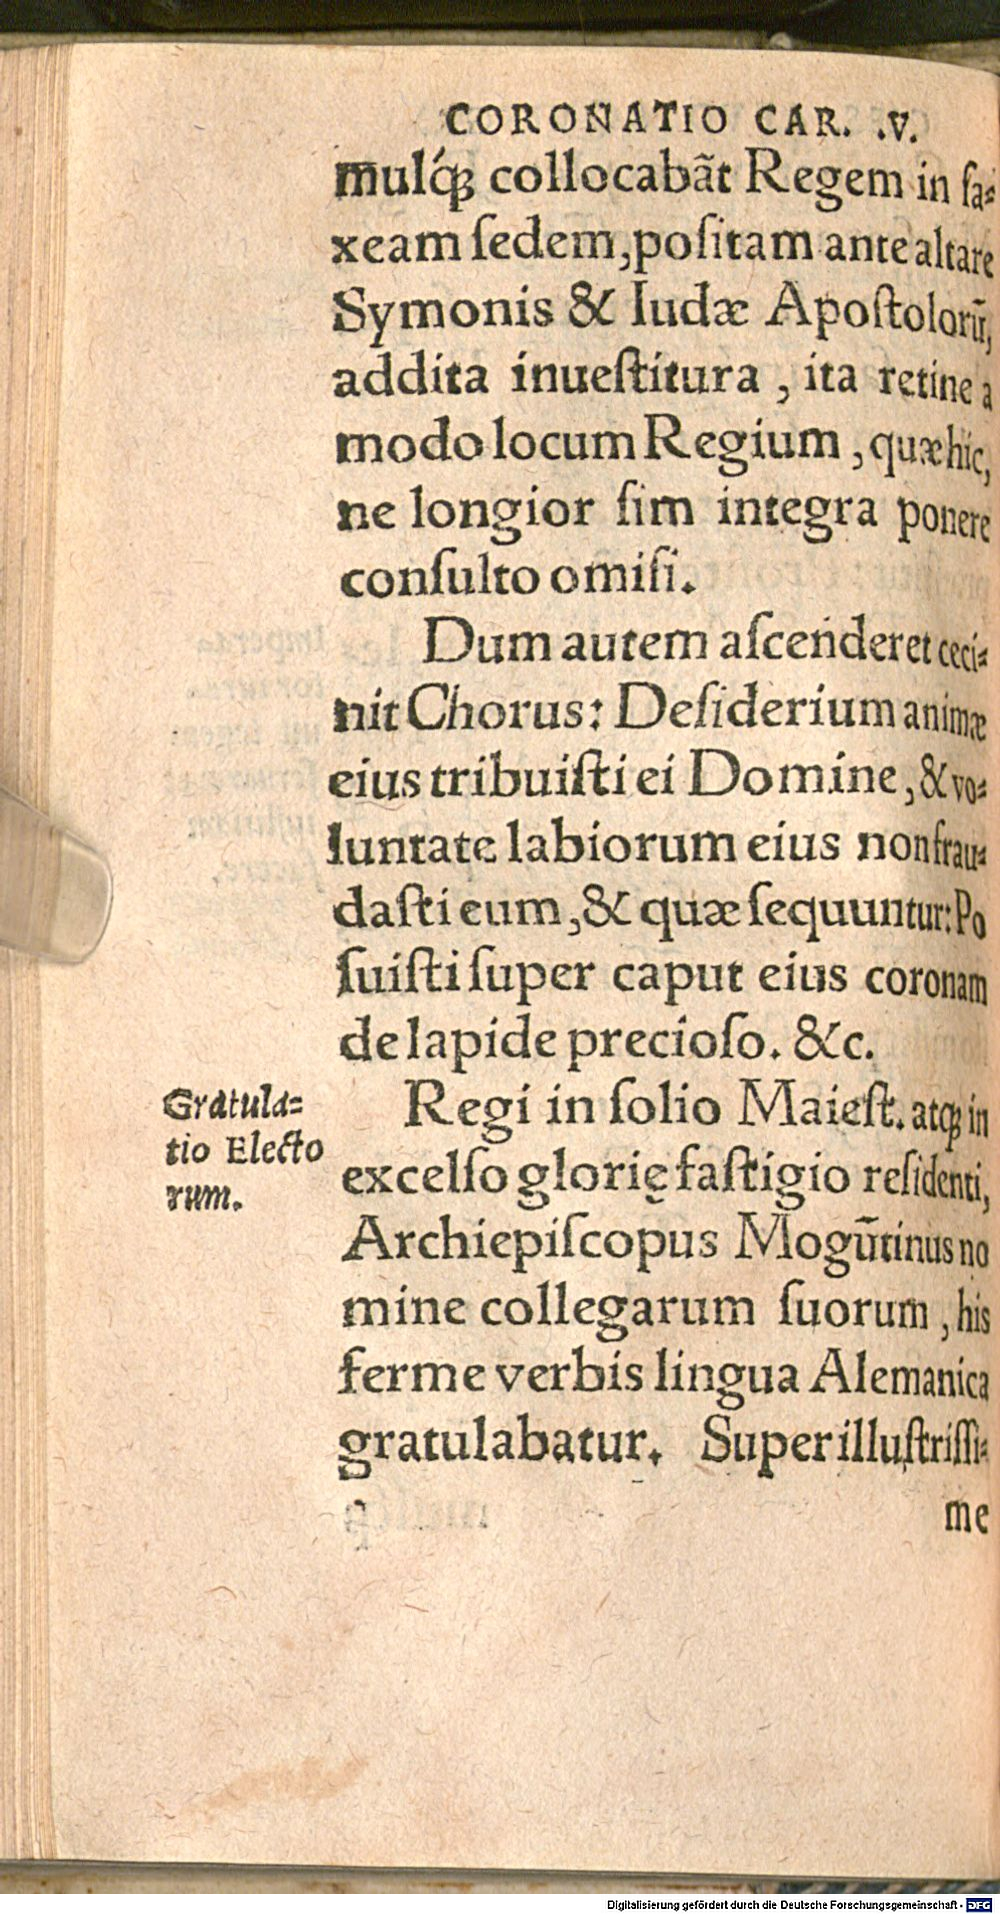 CORONATIO CAR. .V.
mulq́ꝫ collocabãt Regem in ſa⸗
xeam ſedem, poſitam ante altare
Symonis & Iudæ Apoſtolorũ,
addita inueſtitura, ita retine a
modo locum Regium, quæ hic,
ne longior ſim integra ponere
conſulto omiſi.
Dum autem aſcenderet ceci⸗
nit Chorus: Deſiderium animæ
eius tribuiſti ei Domine, & vo⸗
luntate labiorum eius non frau⸗
daſti eum, & quæ ſequuntur: Po
ſuiſti ſuper caput eius coronam
de lapide precioſo. &c.
Gratula⸗
tio Electo
rum.
Regi in ſolio Maieſt. atqꝫ in
excelſo glorię faſtigio reſidenti,
Archiepiſcopus Mogũtinus no
mine collegarum ſuorum, his
ferme verbis lingua Alemanica
gratulabatur. Superilluſtriſſi⸗
me
Digitalisierung gefördert durch die Deutsche Forschungsgemeinschaft - DFG